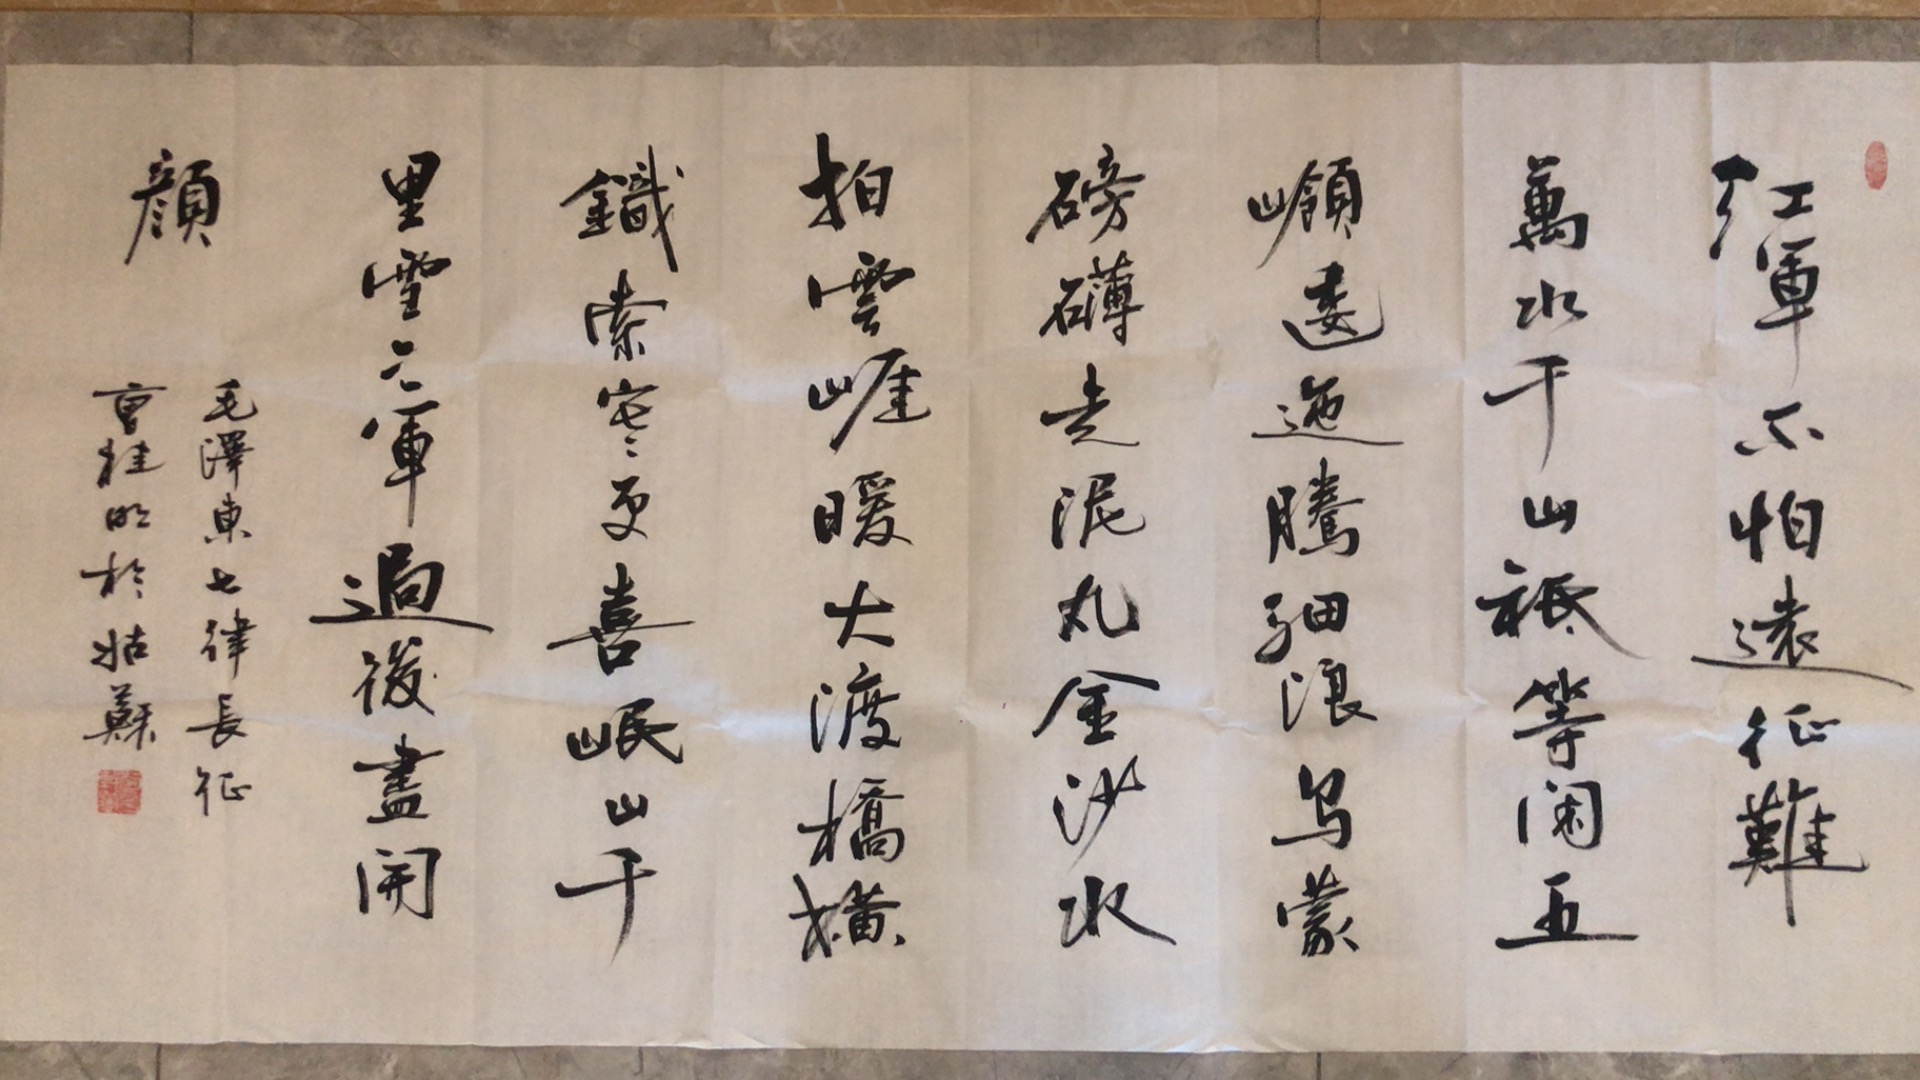 紅軍不怕遠征難
萬水千山祗等閑五
嶺逶迤騰細浪烏蒙
磅礴走泥丸金沙水
拍雲崖暖大渡橋橫
鐵索寒更喜岷山千
里雪三軍過後盡開
顏
毛澤東七律長征
曹桂明於姑蘇